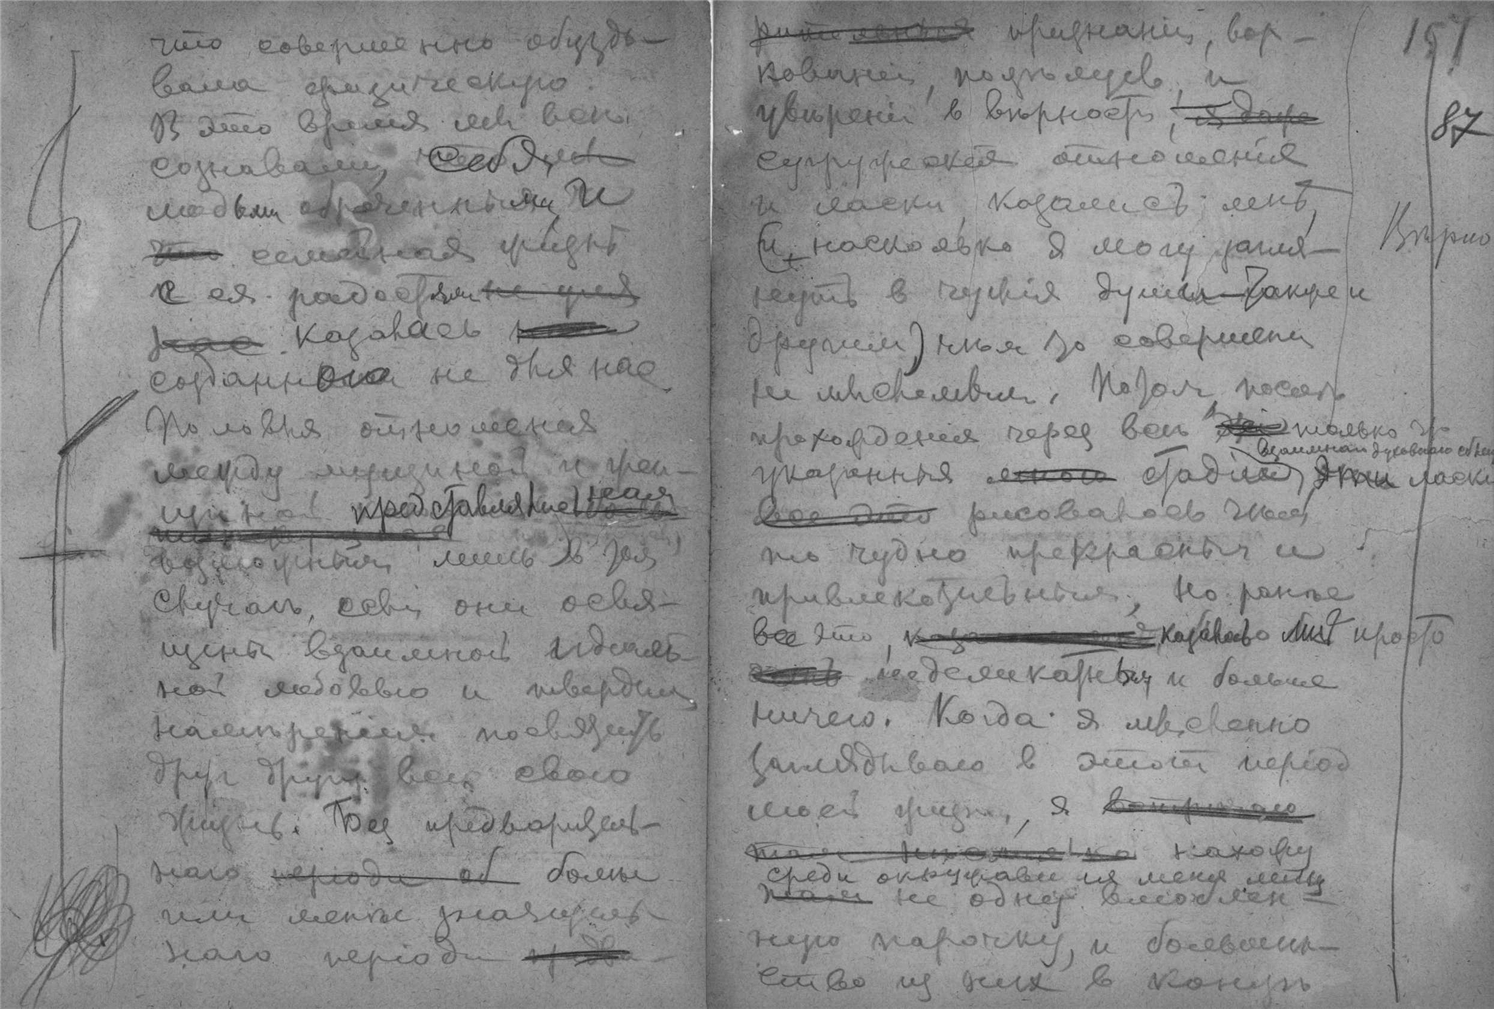 что совершенно обузды-
вала физическую.
В это время мы всѣ
сознавали себя
людьми обреченными, и
семейная жизнь
с ея радостями не для
нас казалась
созданной не для нас.
Половыя отношения
между мущиной и жен-
щиной представлялись
возможными лишь в том
случаѣ, если они освя-
щены взаимной идеаль-
ной любовью и твердым
намѣрением посвятить
друг другу всю свою
жизнь. Без предваритель-
наго періода об болѣе
или менѣе значитель-
наго періода
признаній, вор-
кованій, поцѣлуев и
увѣреній в вѣрности, и даже
супружескія отношенія
и ласки казались мнѣ,
(и, насколько я могу загля-
нуть в чужія души, также и
другим) чѣм то совершенно
немыслимым. Потом, послѣ
прохожденія через всѣ только что
взаимнаго духовнаго
указанныя мною стадіи, эти ласки
все это рисовалось чѣм
то чудно прекрасным и
привлекательным, но ранѣе
все это, казалось бы просто
неделикатным и больше
ничего. Когда я мысленно
заглядываю в этот період
моей жизни, я
нахожу
среди окружавших меня лиц
не одну влюблен-
ную парочку, и большин-
ство из них в концѣ
157
87
Вѣрно